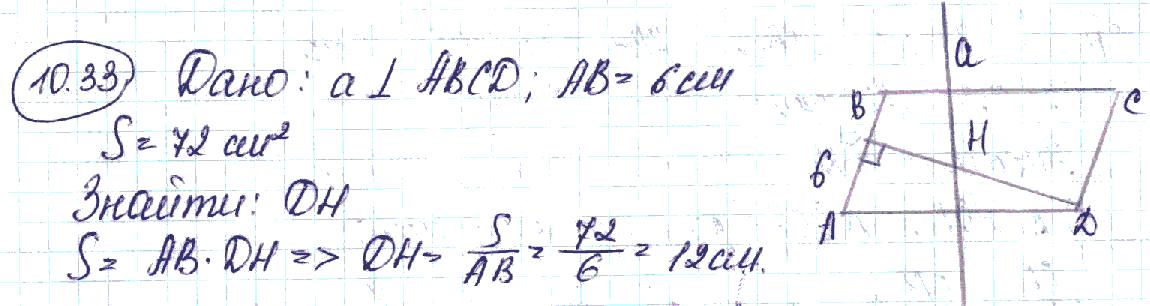 10.33 Дано: a ⊥ ABCD; AB = 6 см
S = 72 см²
Знайти: DH
S = AB · DH => DH = S/AB = 72/6 = 12 см.
a
B
C
H
6
A
D